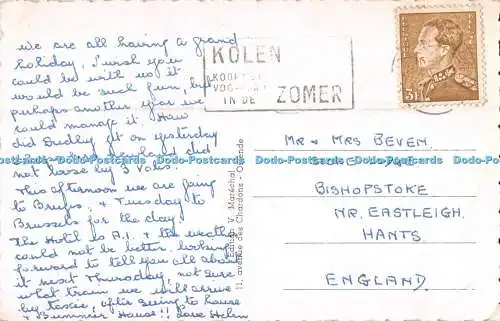 we are all having a grand
holiday, I wish you
could be with us it
would be such fun, but
perhaps another year we
could manage it. How
did Dudley get on yesterday
did
not loose by 3 Votes.
This afternoon we are going
to Bruges, & Tuesday to
Brussels for the day.
The Hotel is A.1. & the weather
could not be better. looking
forward to tell you all about
it next Thursday, not sure
what train we will arrive
by taxi, after going to house
& Bummer House!! love Helen
KOLEN
IN DE ZOMER
BELGIQUE
Edition V. Maréchal
11, avenue des Chardons - Ostende
MR & MRS BEVEN.
BISHOPSTOKE
NR. EASTLEIGH.
HANTS.
ENGLAND.
Dodo-Postcards Dodo-Postcards Dodo-Postcards Dodo-Postcards Dodo-Postcards Dodo-Postcards